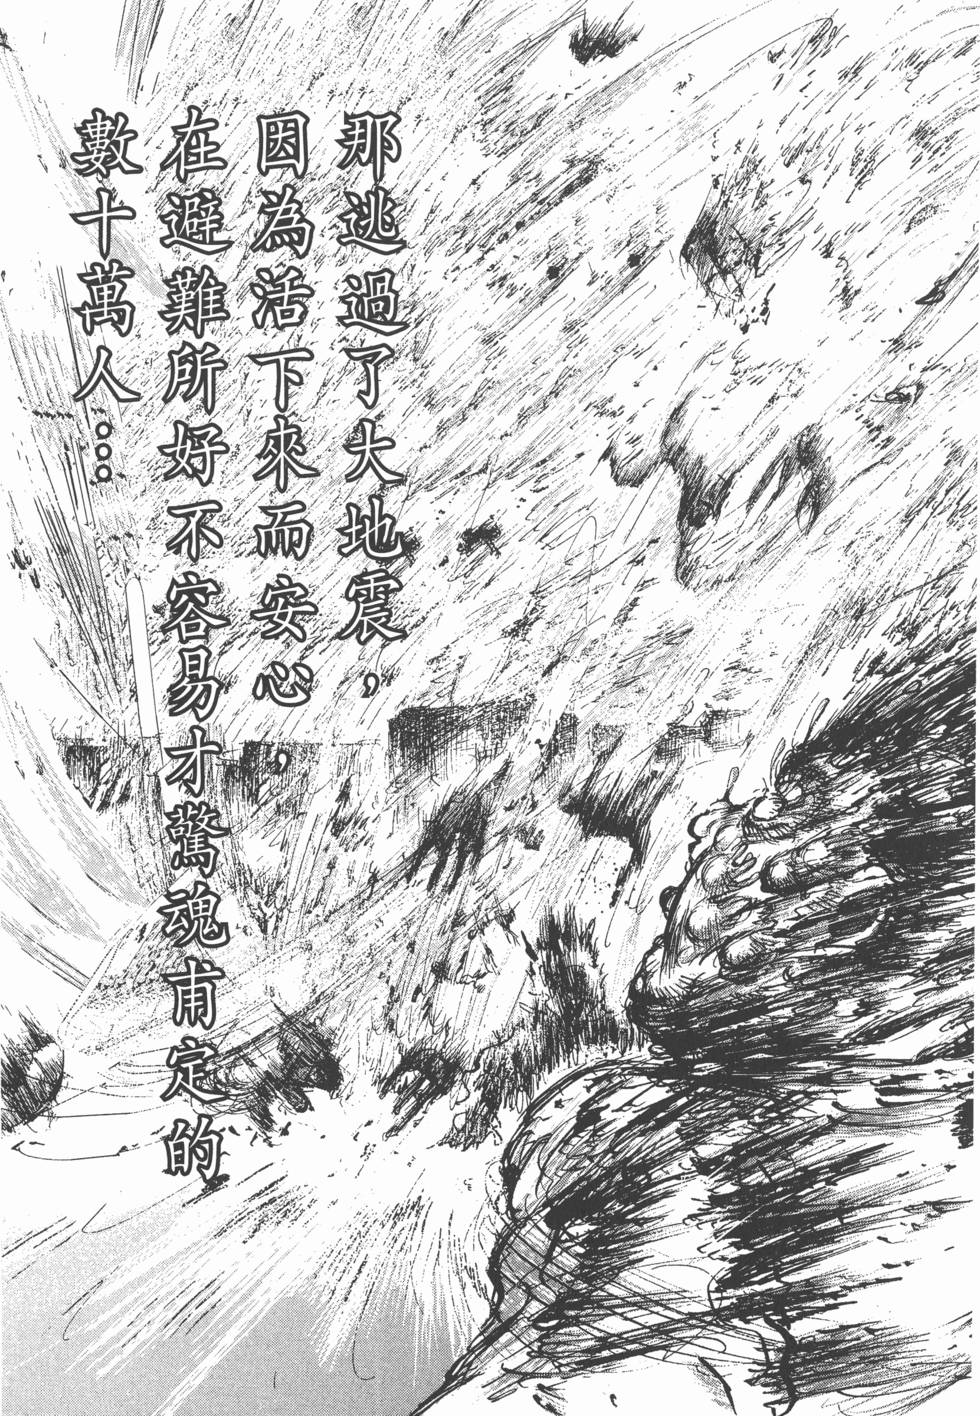 那逃過了大地震，
因為活下來而安心，
在避難所好不容易才驚魂甫定的
數十萬人…